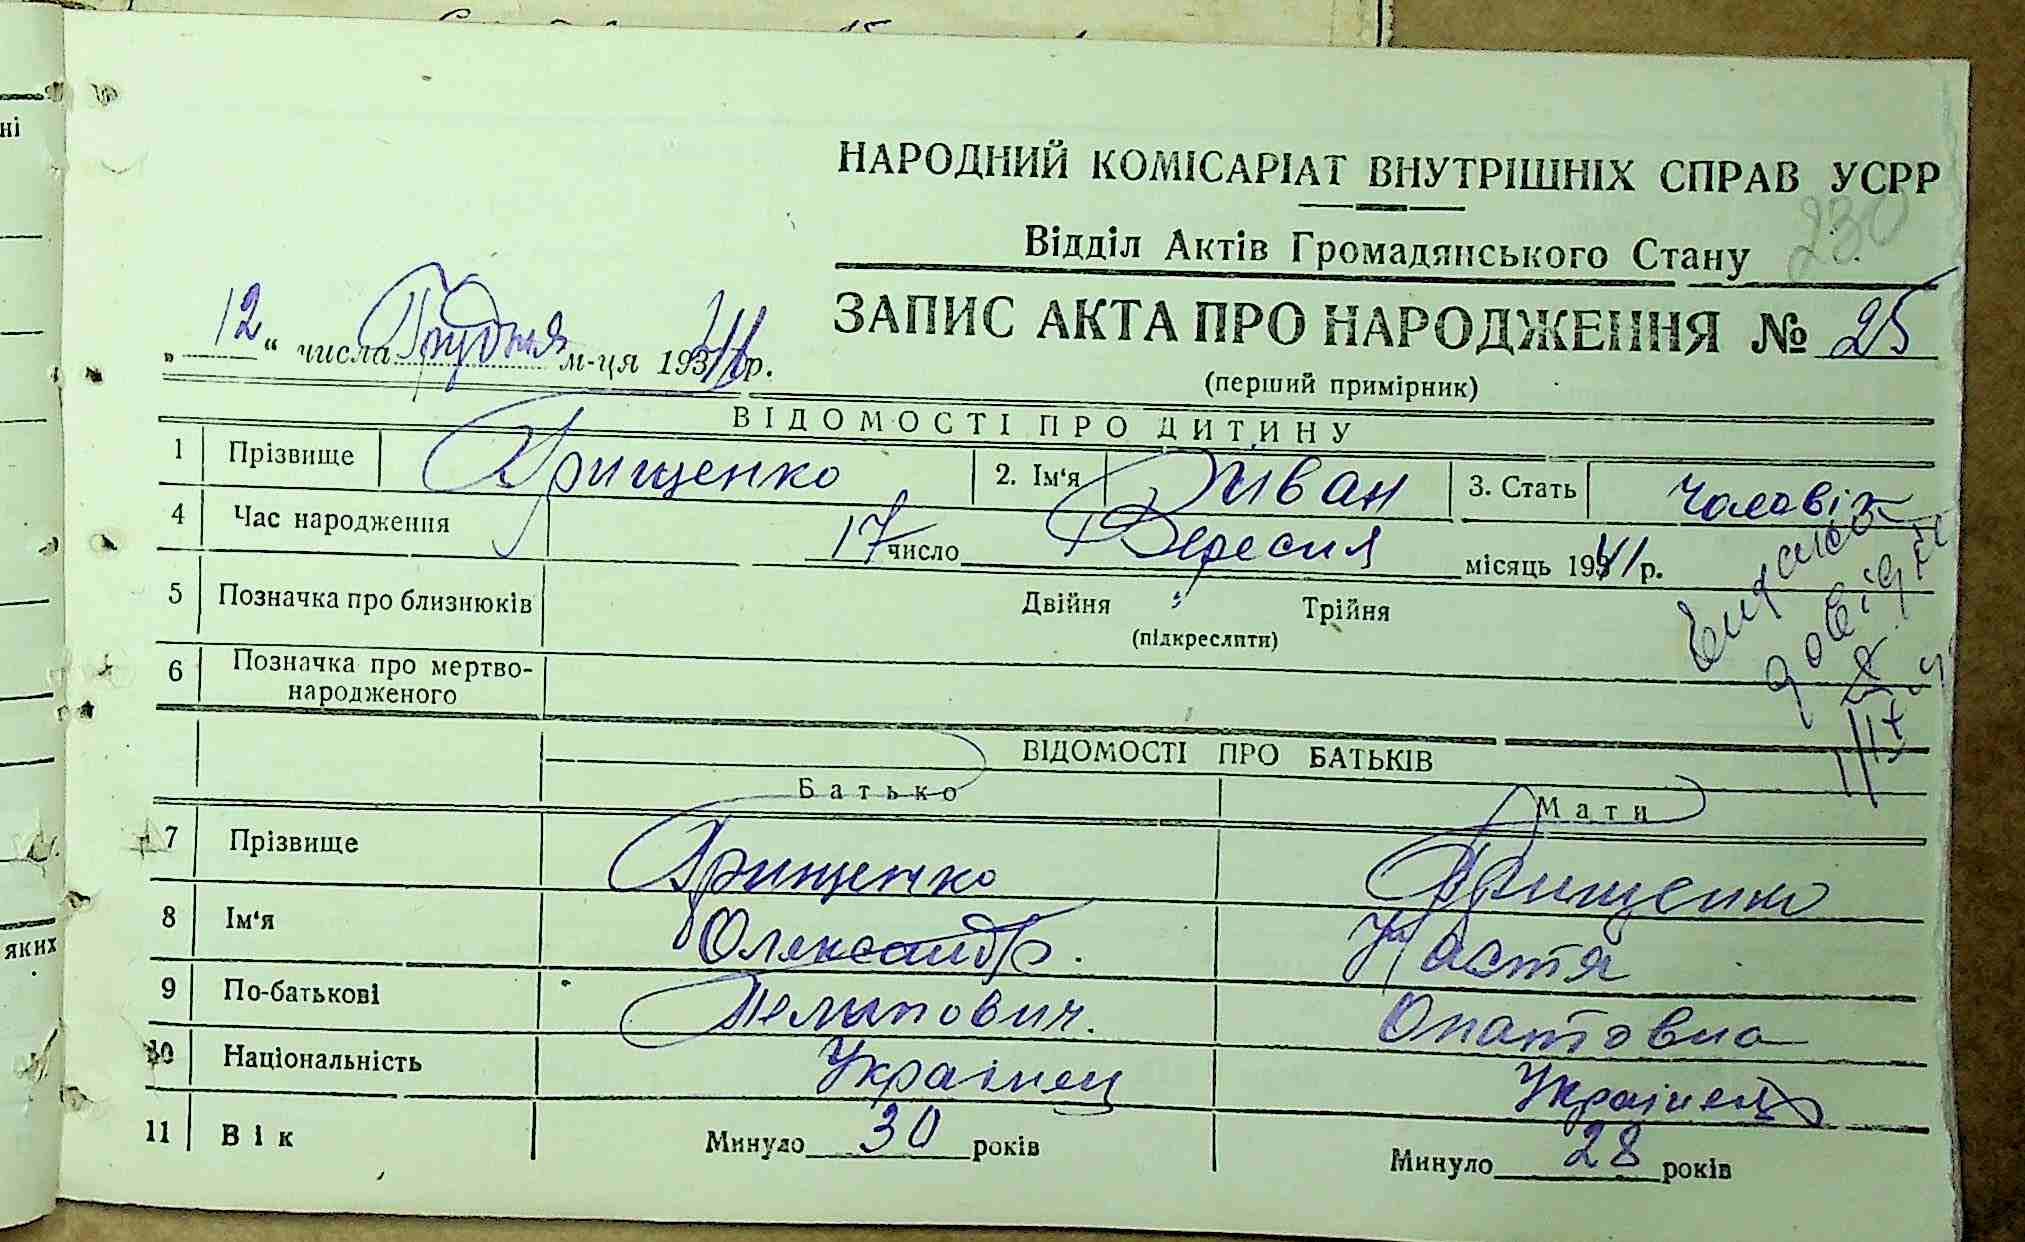 НАРОДНИЙ КОМІСАРІАТ ВНУТРІШНІХ СПРАВ УСРР
230
Відділ Актів Громадянського Стану
„12“ числа Грудня м-ця 1941 р.
ЗАПИС АКТА ПРО НАРОДЖЕННЯ № 25
(перший примірник)
ВІДОМОСТІ ПРО ДИТИНУ
1 Прізвище Грищенко 2. Ім‘я Іиван 3. Стать чоловіч
4 Час народження 17 число Вересня місяць 1941 р.
5 Позначка про близнюків Двійня Трійня
(підкреслити)
6 Позначка про мертво-
народженого
ВІДОМОСТІ ПРО БАТЬКІВ
Батько Мати
7 Прізвище Грищенко Грищенко
8 Ім‘я Олександр. Настя
9 По-батькові Пелипович. Опатовна
10 Національність Украінец Украінец
11 Вік Минуло 30 років Минуло 28 років
ні
яких